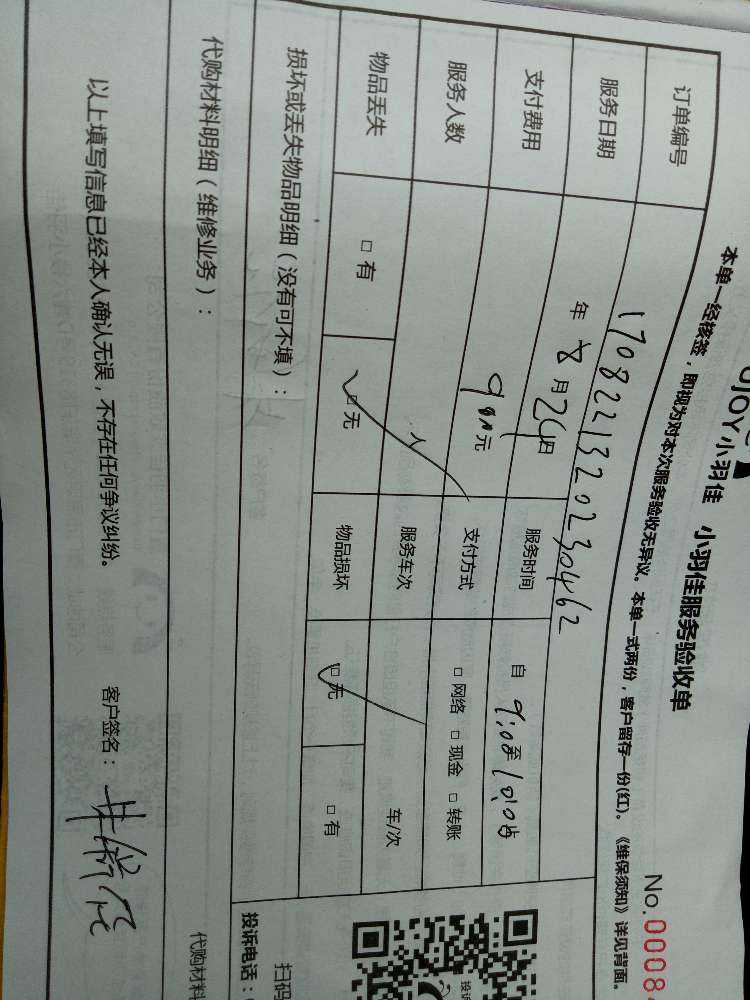 JOY小羽佳 小羽佳服务验收单
No.0008
本单一经核签，即视为对本次服务验收无异议。本单一式两份，客户留存一份(红)。《维保须知》详见背面。
订单编号 1708221320230462
服务日期 年 8 月 24 日 服务时间 自 9:00 至 10:00
支付费用 元 支付方式 □ 网络 □ 现金 □ 转账
服务人数 人 服务车次 车/次
物品丢失 □ 有 □ 无 物品损坏 □ 无 □ 有
损坏或丢失物品明细（没有可不填）：
代购材料明细（维修业务）：
代购材料
以上填写信息已经本人确认无误，不存在任何争议纠纷。 客户签名：
投诉
扫码
投诉电话：